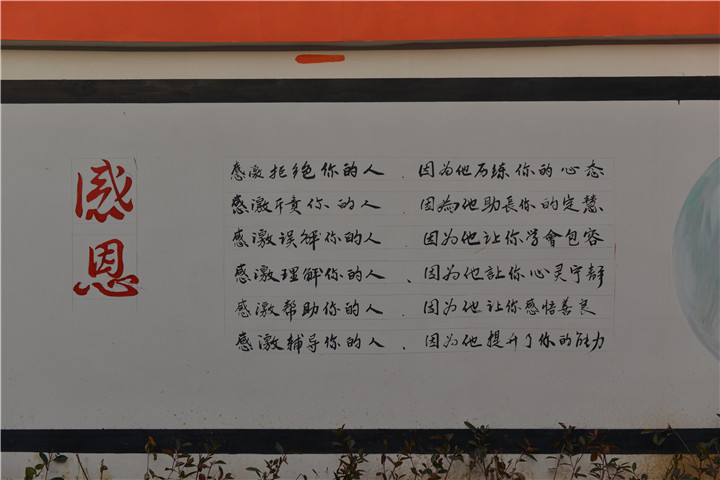 感恩
感激拒绝你的人、因为他历练你的心态
感激斥责你的人、因為他助長你的定慧
感激误解你的人、因为他让你学會包容
感激理解你的人、因为他让你心灵宁静
感激帮助你的人、因为他让你感悟善良
感激辅导你的人、因为他提升了你的能力